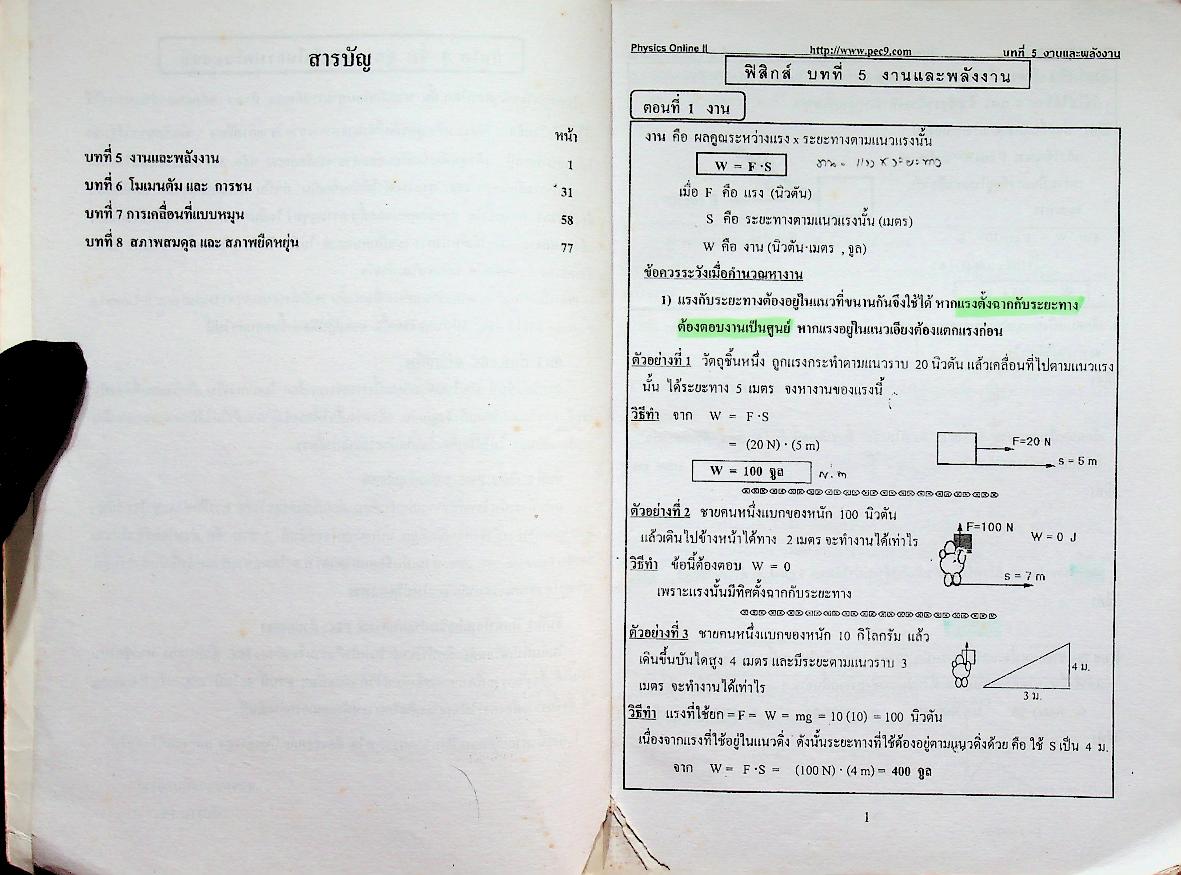 สารบัญ
หน้า
บทที่ 5 งานและพลังงาน 1
บทที่ 6 โมเมนตัม และ การชน 31
บทที่ 7 การเคลื่อนที่แบบหมุน 58
บทที่ 8 สภาพสมดุล และ สภาพยืดหยุ่น 77
Physics Online II http://www.pec9.com บทที่ 5 งานและพลังงาน
ฟิสิกส์ บทที่ 5 งานและพลังงาน
ตอนที่ 1 งาน
งาน คือ ผลคูณระหว่างแรง x ระยะทางตามแนวแรงนั้น
W = F·S งาน = แรง x ระยะทาง
เมื่อ F คือ แรง (นิวตัน)
S คือ ระยะทางตามแนวแรงนั้น (เมตร)
W คือ งาน (นิวตัน·เมตร , จูล)
ข้อควรระวังเมื่อคำนวณหางาน
1) แรงกับระยะทางต้องอยู่ในแนวที่ขนานกันจึงใช้ได้ หากแรงตั้งฉากกับระยะทาง
ต้องตอบงานเป็นศูนย์ หากแรงอยู่ในแนวเอียงต้องแตกแรงก่อน
ตัวอย่างที่ 1 วัตถุชิ้นหนึ่ง ถูกแรงกระทำตามแนวราบ 20 นิวตัน แล้วเคลื่อนที่ไปตามแนวแรง
นั้น ได้ระยะทาง 5 เมตร จงหางานของแรงนี้
วิธีทำ จาก W = F·S
= (20 N)·(5 m)
F=20 N
s = 5 m
W = 100 จูล N.m
ตัวอย่างที่ 2 ชายคนหนึ่งแบกของหนัก 100 นิวตัน
แล้วเดินไปข้างหน้าได้ทาง 2 เมตร จะทำงานได้เท่าไร
F=100 N
W = 0 J
s = 7 m
วิธีทำ ข้อนี้ต้องตอบ W = 0
เพราะแรงนั้นมีทิศตั้งฉากกับระยะทาง
ตัวอย่างที่ 3 ชายคนหนึ่งแบกของหนัก 10 กิโลกรัม แล้ว
เดินขึ้นบันไดสูง 4 เมตร และมีระยะตามแนวราบ 3
เมตร จะทำงานได้เท่าไร
4 ม.
3 ม.
วิธีทำ แรงที่ใช้ยก = F = W = mg = 10 (10) = 100 นิวตัน
เนื่องจากแรงที่ใช้อยู่ในแนวดิ่ง ดังนั้นระยะทางที่ใช้ต้องอยู่ตามแนวดิ่งด้วย คือ ใช้ S เป็น 4 ม.
จาก W = F·S = (100 N)·(4 m) = 400 จูล
1